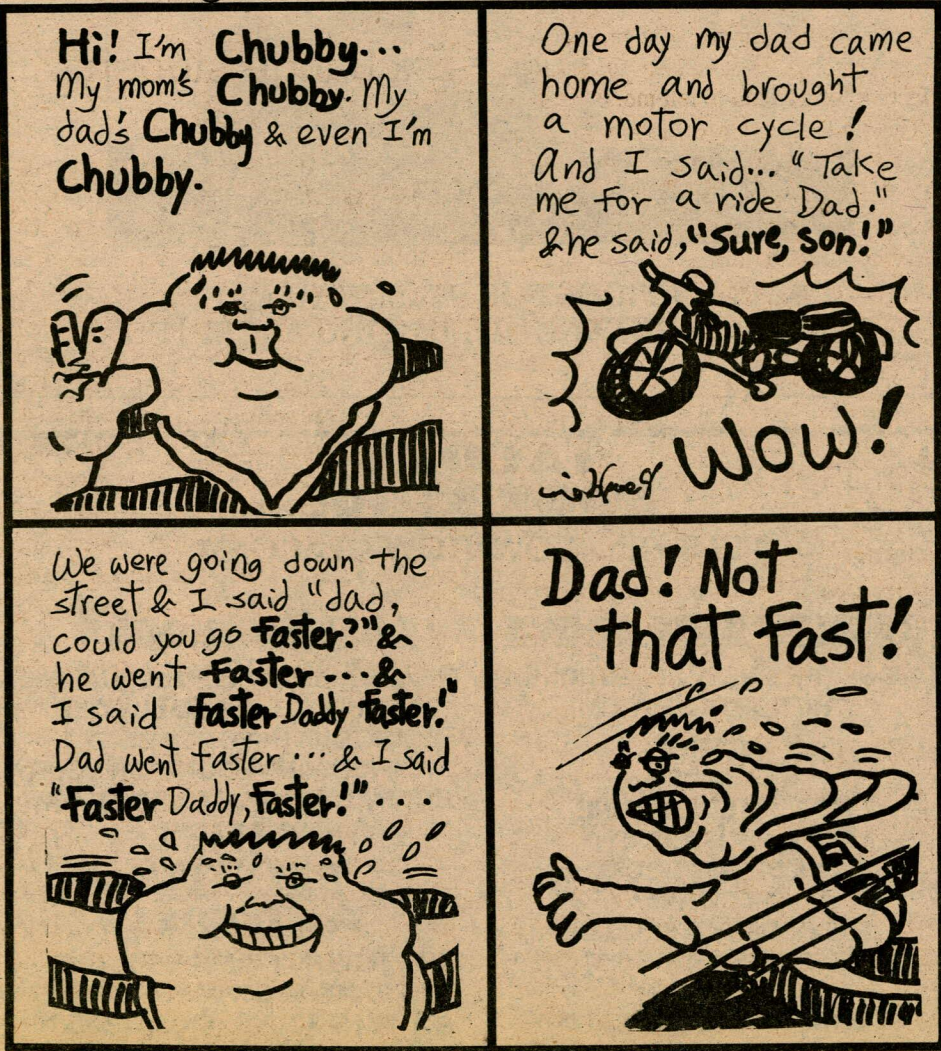 Hi! I'm Chubby...
My mom's Chubby. My
dad's Chubby & even I'm
Chubby.
One day my dad came
home and brought
a motor cycle!
And I said... "Take
me for a ride Dad."
& he said, "Sure, son!"
WOW!
We were going down the
street & I said "dad,
could you go faster?" &
he went faster ... &
I said faster Daddy faster!"
Dad went faster ... & I said
"Faster Daddy, Faster!"...
Dad! Not
that fast!